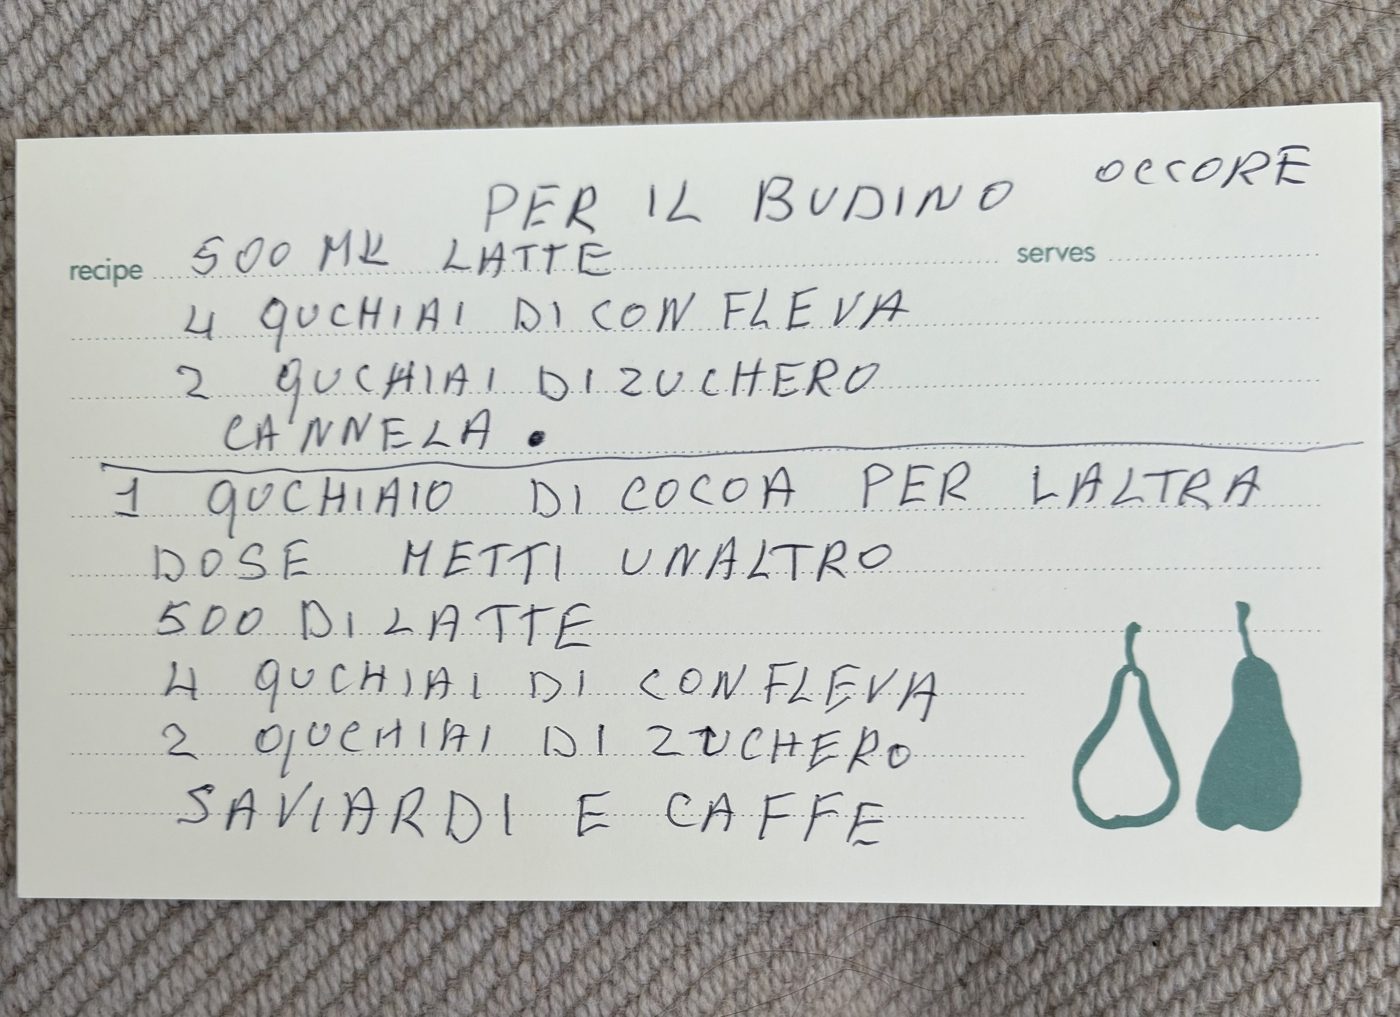 PER IL BUDINO OCCORE
recipe 500 ML LATTE serves
4 QUCHIAI DI CON FLEVA
2 QUCHIAI DI ZUCHERO
CANNELA.
1 QUCHIAIO DI COCOA PER LALTRA
DOSE METTI UNALTRO
500 DI LATTE
4 QUCHIAI DI CON FLEVA
2 QUCHIAI DI ZUCHERO
SAVIARDI E CAFFE